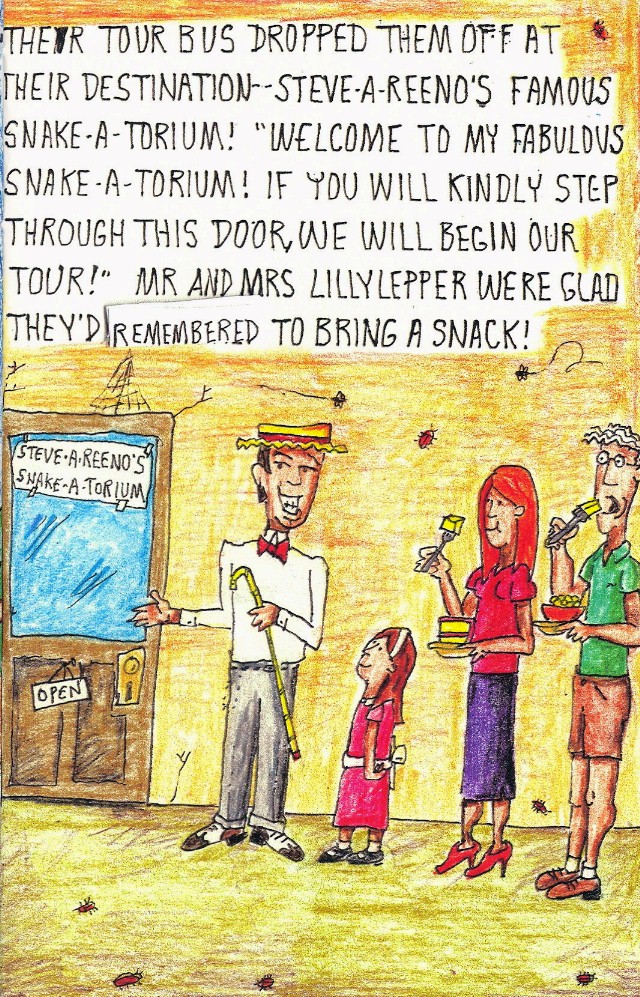 THEIR TOUR BUS DROPPED THEM OFF AT
THEIR DESTINATION--STEVE-A-REENO'S FAMOUS
SNAKE-A-TORIUM! "WELCOME TO MY FABULOUS
SNAKE-A-TORIUM! IF YOU WILL KINDLY STEP
THROUGH THIS DOOR, WE WILL BEGIN OUR
TOUR!" MR AND MRS LILLYLEPPER WERE GLAD
THEY'D REMEMBERED TO BRING A SNACK!
STEVE-A-REENO'S
SNAKE-A-TORIUM
OPEN